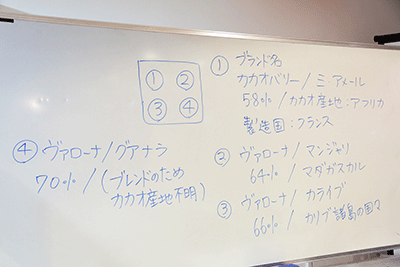 ① ②
③ ④
① ブランド名
カカオバリー/ミ・アメール
58%/カカオ産地:アフリカ
製造国:フランス
② ヴァローナ/マンジャリ
64%/マダガスカル
③ ヴァローナ/カライブ
66%/カリブ諸島の国々
④ ヴァローナ/グアナラ
70%/(ブレンドのため
カカオ産地不明)